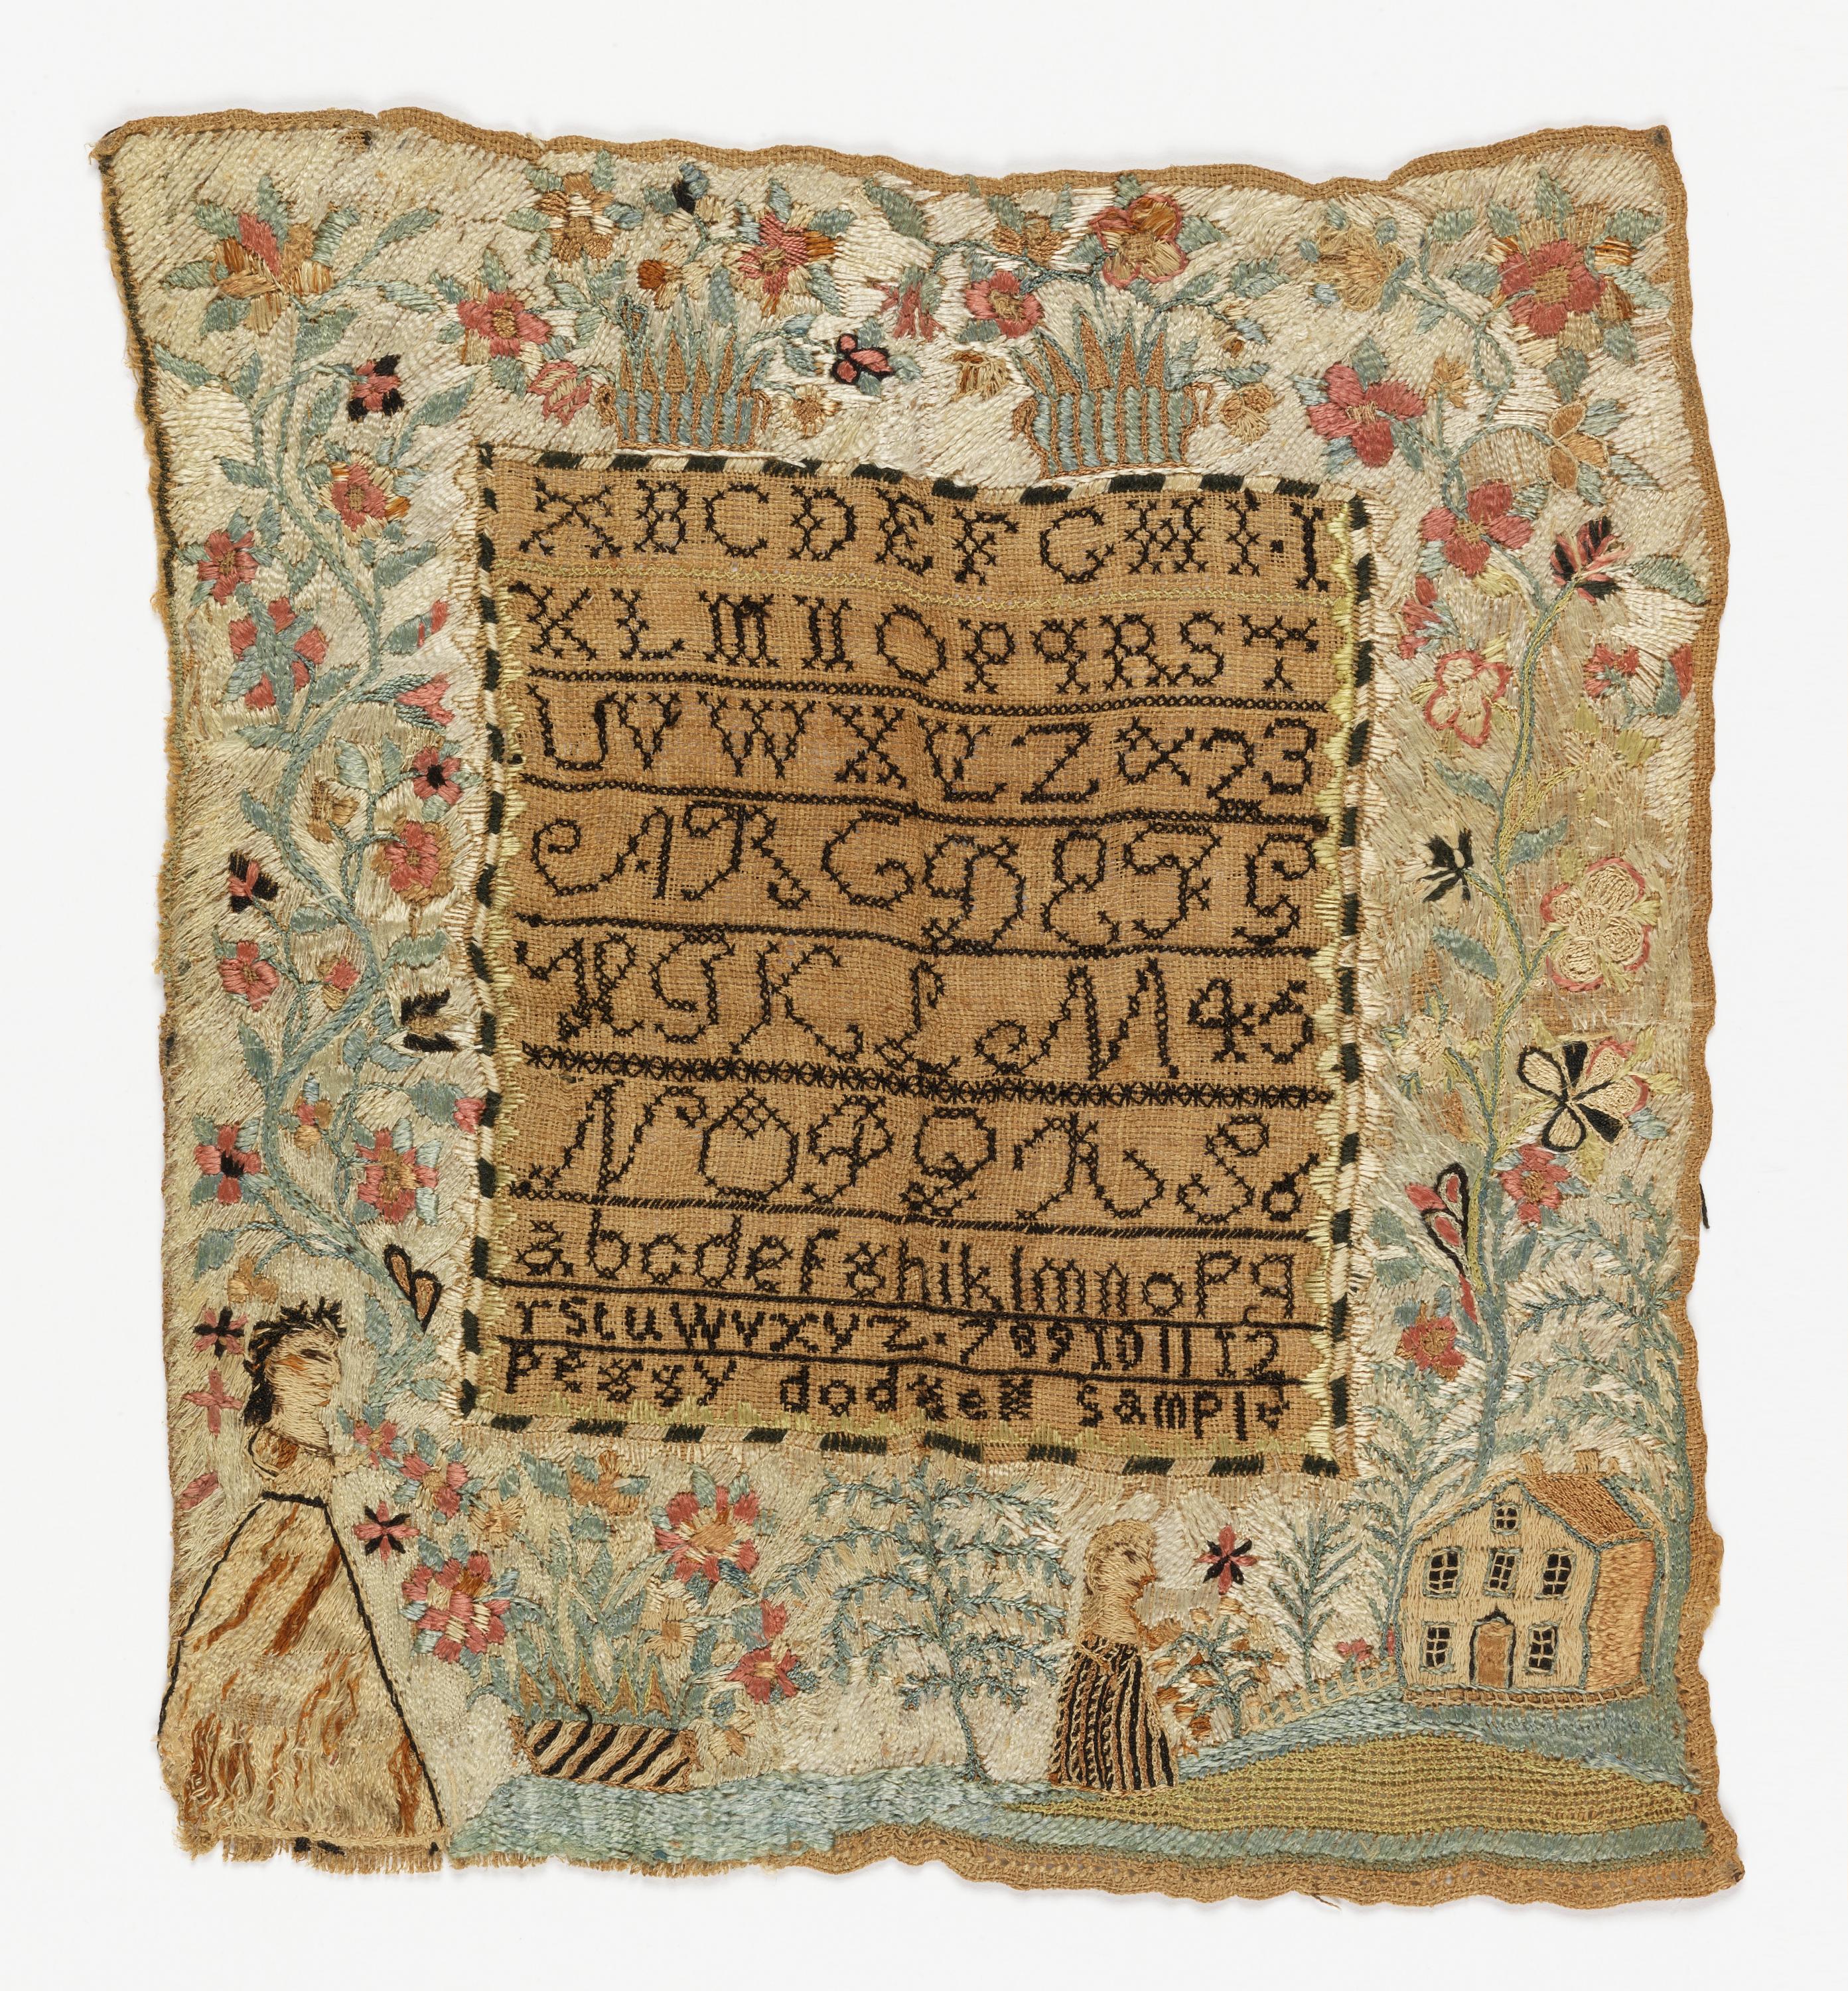 A B C D E F G H I · I
K L M N O P q R S T
U V W X Y Z & 2 3
A B C D E F G
H I K L M 4 5
N O P Q R S 6
a b c d e f g h i k l m n o p q
r s t u w v x y z · 7 8 9 10 11 12
peggy dodges sample